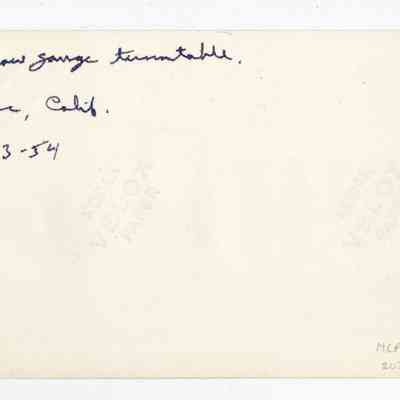 ow gauge turntable.
, Calif.
3-54
KODAK
VELOX
PAPER
KODAK
VELOX
PAPER
MCA
207